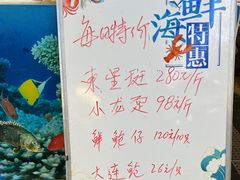 海鲜
特惠
每日特价
东星斑 280元/斤
小龙趸 98元/斤
鲜鲍仔 120元/10只
大连鲍 26元/只